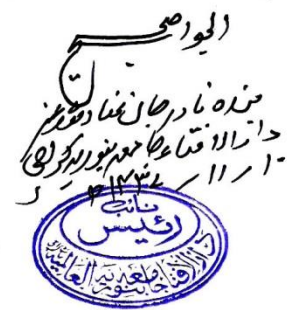 الجواب صحیح
بندہ نادر جان
دارالافتاء جامعہ بنوریہ کراچی
نائب
رئیس
دارالافتاء جامعہ بنوریہ العالمیہ